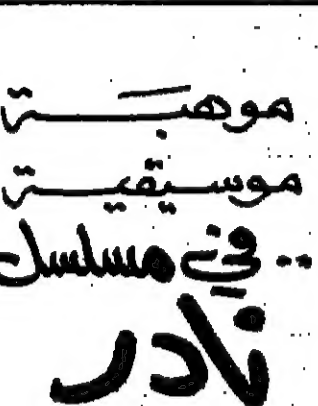 موهبة
موسيقية
.. في مسلسل
نادر